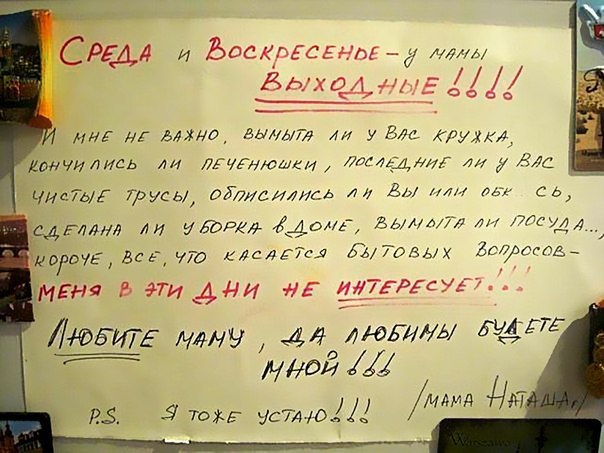 Среда и Воскресенье – у мамы
выходные!!!!
И мне не важно, вымыта ли у Вас кружка,
кончились ли печенюшки, последние ли у Вас
чистые трусы, обписились ли Вы или обк...сь,
сделана ли уборка в доме, вымыта ли посуда...,
короче, все, что касается бытовых вопросов –
меня в эти дни не интересует!!!
Любите маму, да любимы будете
мной!!!
/мама Наташа/
P.S. Я тоже устаю!!!